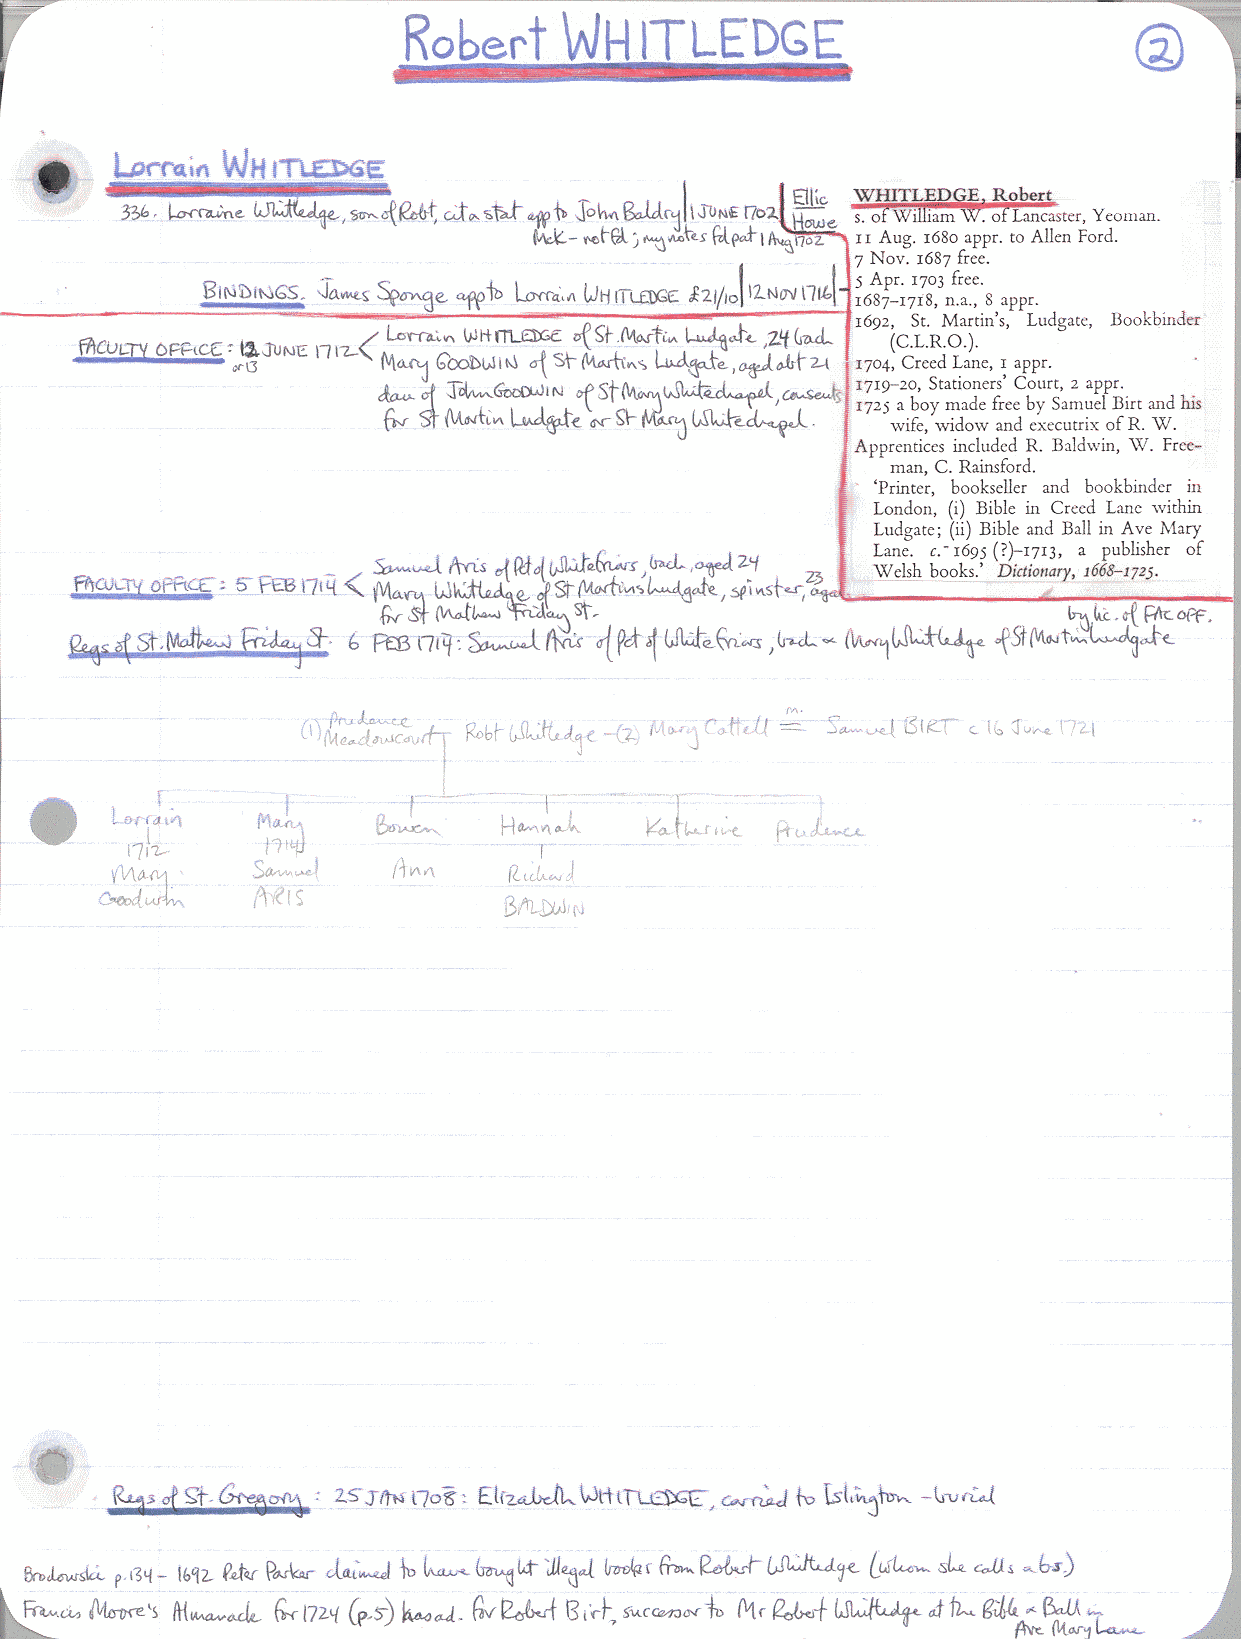 Robert WHITLEDGE
2
Lorrain WHITLEDGE
336. Lorraine Whitledge, son of Robt, cit & stat app to John Baldry 1 JUNE 1702
McK - not fd; my notes fd pat 1 Aug 1702
Ellic
Howe
BINDINGS. James Sponge app to Lorrain WHITLEDGE £21/10 12 NOV 1716
FACULTY OFFICE: 12 JUNE 1712
or 13
Lorrain WHITLEDGE of St Martin Ludgate, 24 bach
Mary GOODWIN of St Martins Ludgate, aged abt 21
dau of John GOODWIN of St Mary Whitechapel, consents
for St Martin Ludgate or St Mary Whitechapel.
WHITLEDGE, Robert
s. of William W. of Lancaster, Yeoman.
11 Aug. 1680 appr. to Allen Ford.
7 Nov. 1687 free.
5 Apr. 1703 free.
1687–1718, n.a., 8 appr.
1692, St. Martin's, Ludgate, Bookbinder
(C.L.R.O.).
1704, Creed Lane, 1 appr.
1719–20, Stationers' Court, 2 appr.
1725 a boy made free by Samuel Birt and his
wife, widow and executrix of R. W.
Apprentices included R. Baldwin, W. Free-
man, C. Rainsford.
'Printer, bookseller and bookbinder in
London, (i) Bible in Creed Lane within
Ludgate; (ii) Bible and Ball in Ave Mary
Lane. c. 1695 (?)–1713, a publisher of
Welsh books.' Dictionary, 1668–1725.
FACULTY OFFICE: 5 FEB 1714
Samuel Aris of Pct of Whitefriars, bach, aged 24
Mary Whitledge of St Martins Ludgate, spinster, aged 23
for St Mathew Friday St.
by lic. of FAC OFF.
Regs of St. Mathew Friday St. 6 FEB 1714: Samuel Aris of pct of White friars, bach & Mary Whitledge of St Martin Ludgate
(1) Prudence
Meadowcourt
Robt Whitledge - (2) Mary Cattell m. = Samuel BIRT c 16 June 1721
Lorrain Mary Bowen Hannah Katherine Prudence
1712 1714
Mary Samuel Ann Richard
Goodwin ARIS BALDWIN
Regs of St. Gregory: 25 JAN 1708: Elizabeth WHITLEDGE, carried to Islington - burial
Brodowski p.134 - 1692 Peter Parker claimed to have bought illegal books from Robert Whitledge (whom she calls a bs.)
Francis Moore's Almanack for 1724 (p.5) has ad. for Robert Birt, successor to Mr Robert Whitledge at the Bible & Ball in
Ave Mary Lane